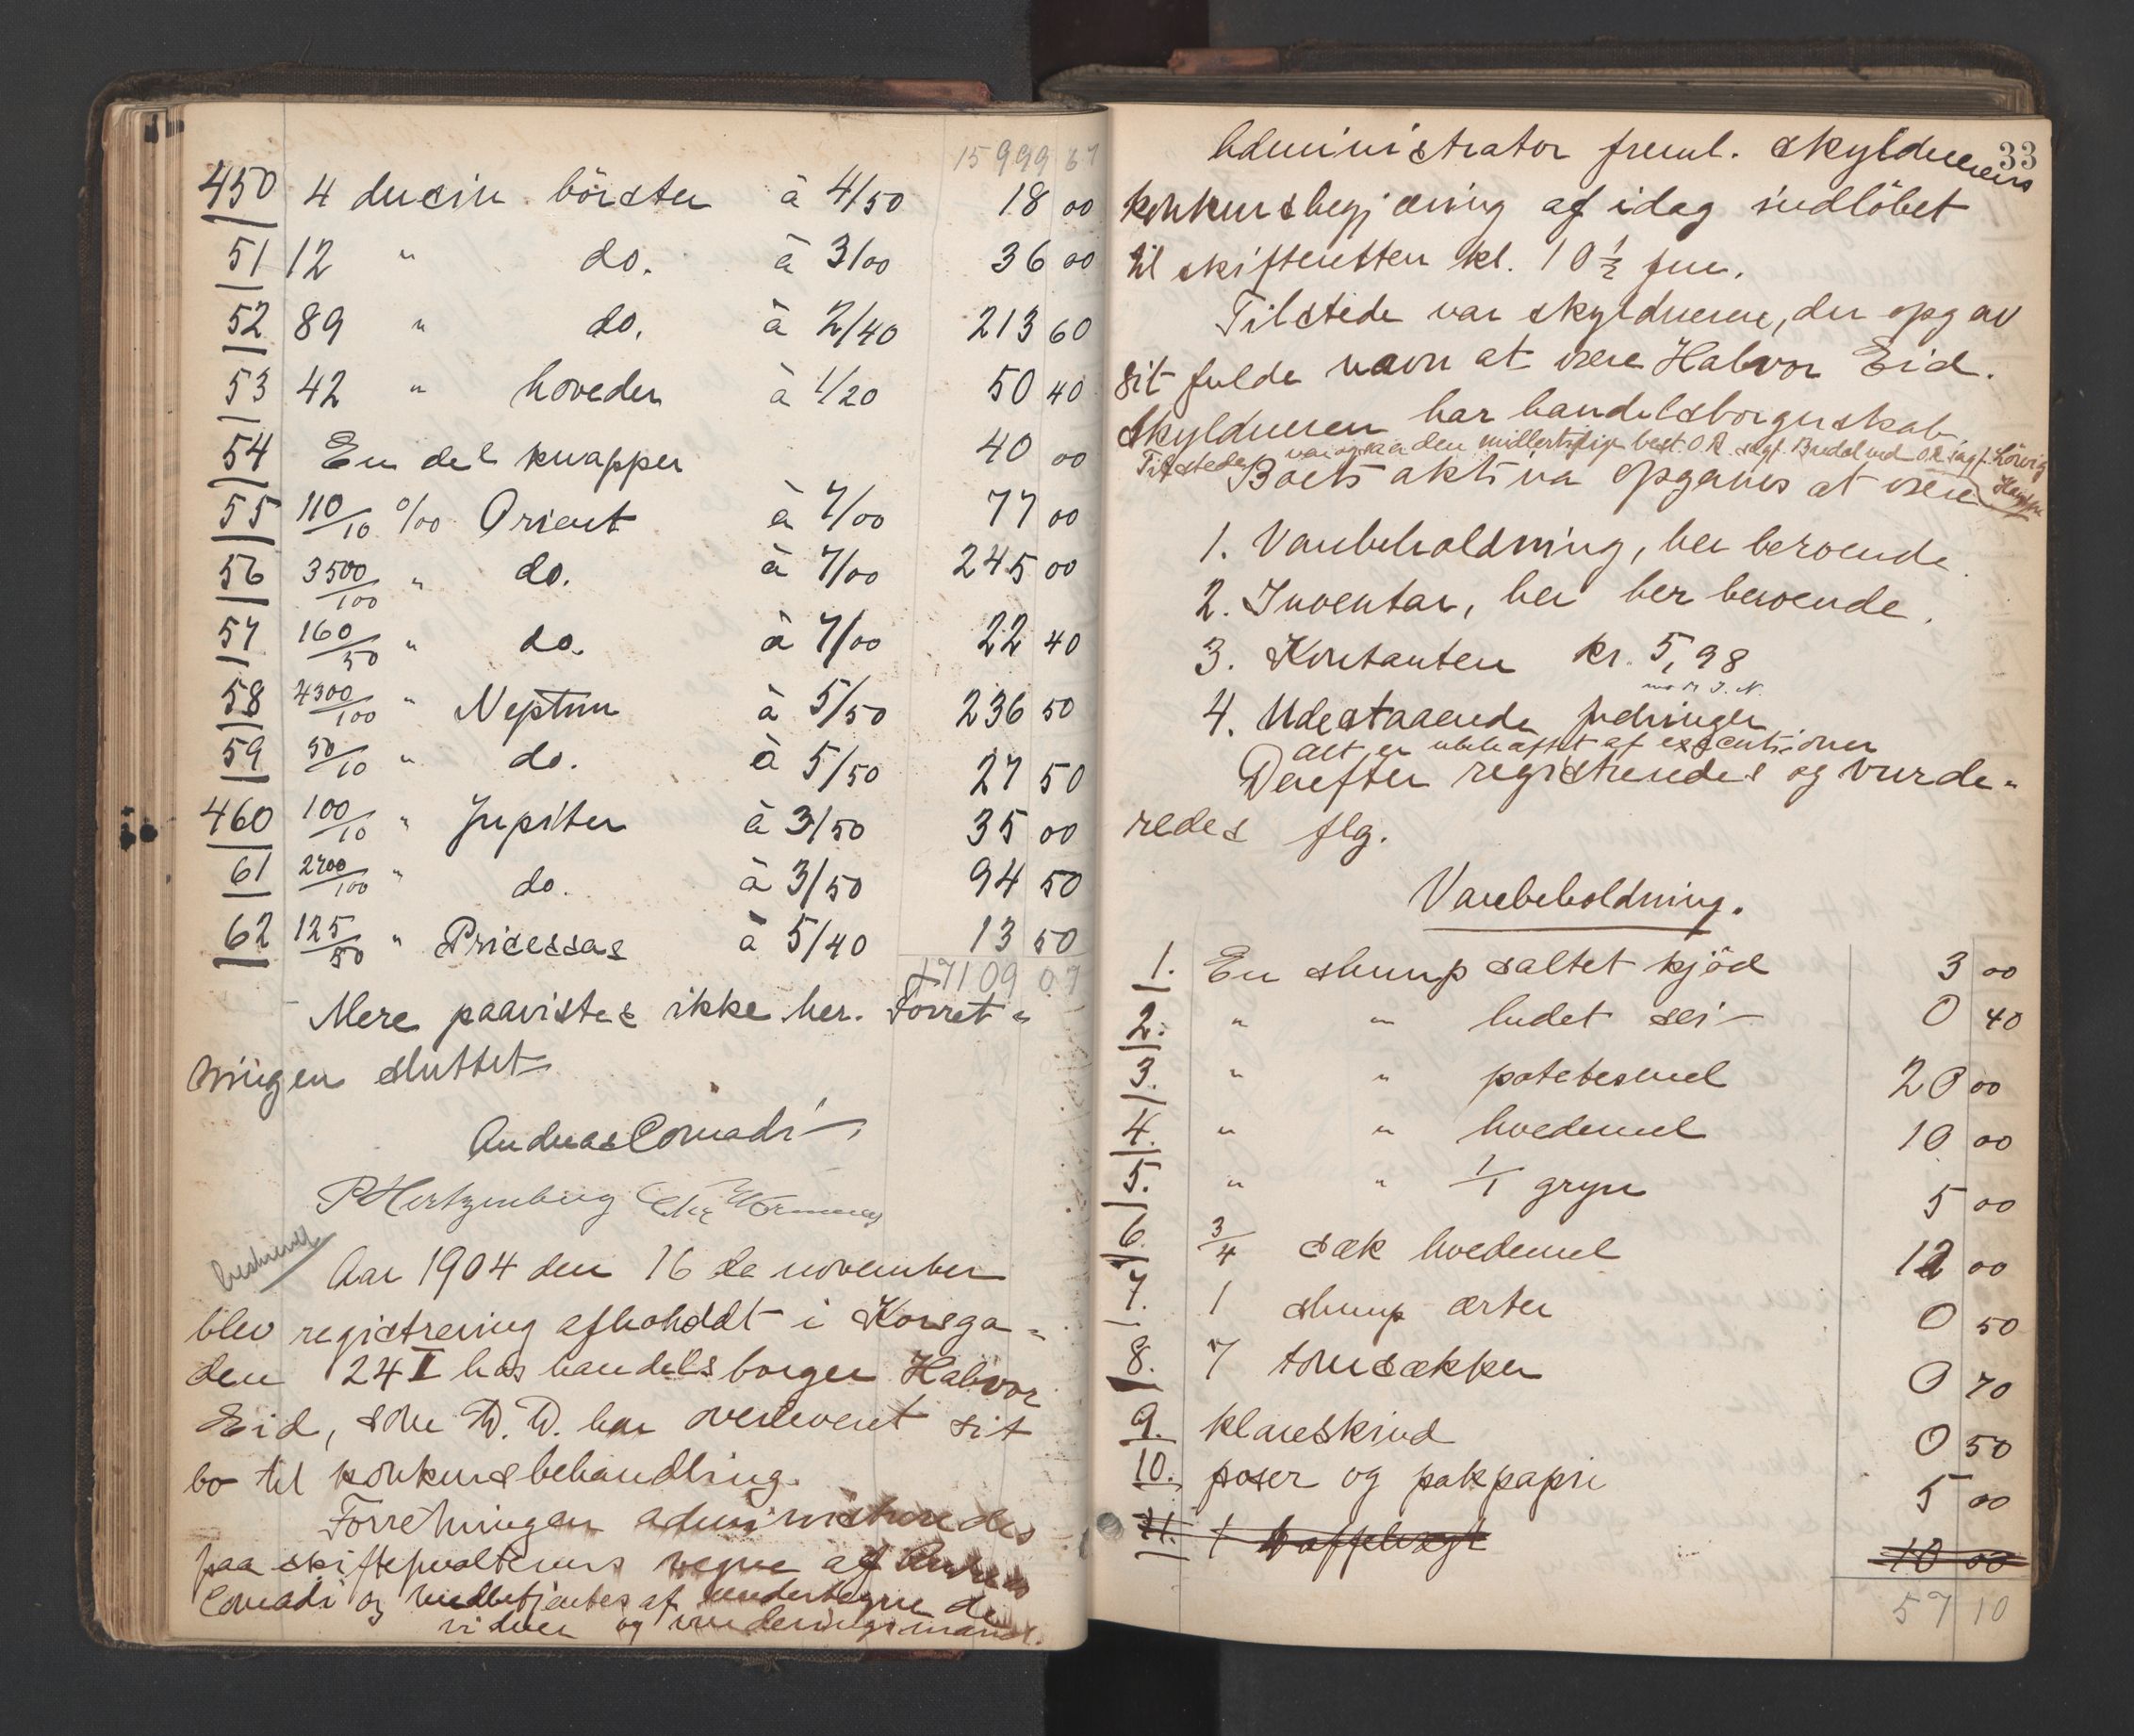 15999 67
450 4 dusin börster à 4/50 18 00
51 12 " do. à 3/00 36 00
52 89 " do. à 2/40 213 60
53 42 " hoveder à 1/20 50 40
54 En del knapper 40 00
55 110/10 0/00 Orient à 7/00 77 00
56 3500/100 " do. à 7/00 245 00
57 160/50 " do. à 7/00 22 40
58 4300/100 " Neptun à 5/50 236 50
59 50/10 " do. à 5/50 27 50
460 100/10 " Jupiter à 3/50 35 00
61 2700/100 " do. à 3/50 94 50
62 125/50 " Pricessas à 5/40 13 50
17109 07
Mere paavistes ikke her. Forret=
ningen sluttet
Andreas Conradi
P Hertzenberg Chr
Aar 1904 den 16 de november
blev registrering afholddt i Korsga=
den 24 I hos handelsborger Halvor
Eid, som D. D. har overleveret sit
bo til konkursbehandling.
Forretningen administreredes
paa skifteforvalterens vegne af Andreas
Conradi og medbetjentes af undertegnede
vidner og vurderingsmænd.
33
Administrator freml. skyldnerens
konkursbegjæring af idag indlöbet
til skifteretten kl. 10 1/2 fm.
Tilstede var skyldneren, der opgav
sit fulde navn at være Halvor Eid.
Skyldneren har handelsborgerskab
Tilstede var ogsaa den midlertidige best. O.R. sagf. Bredal ved O.R. sagf. Lövig
Boets aktiva opgaves at være
1. Varebeholdning, her beroende.
2. Inventar, her beroende.
3. Kontanter kr. 5,98
4. Udestaaende fordringer
Alt er ubehæftet af executioner
Derefter registreredes og vurde=
redes flg.
Varebeholdning.
1. En slump saltet kjöd 3 00
2. " " ludet sei 0 40
3. " " potetesmel 20 00
4. " " hvedemel 10 00
5. " " 1/1 gryn 5 00
6. 3/4 sæk hvedemel 12 00
7. 1 slump ærter 0 50
8. 7 tomsækker 0 70
9. klareskind 0 50
10. poser og pakpapir 5 00
11. 1 10 00
57 10